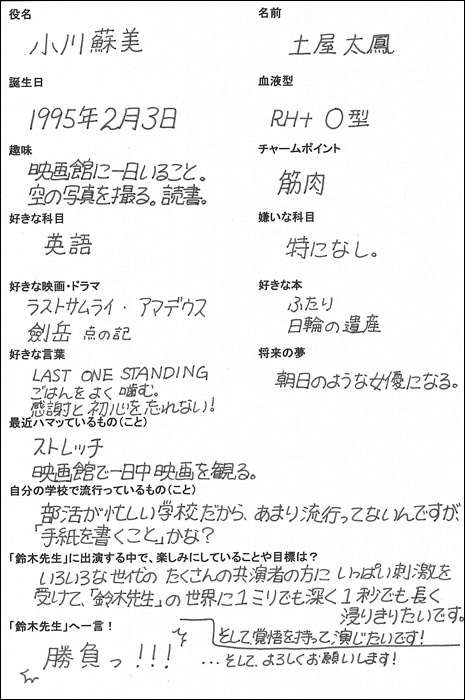 役名
名前
小川蘇美
土屋太鳳
誕生日
血液型
1995年2月3日
RH+ O型
趣味
チャームポイント
映画館に一日いること。
空の写真を撮る。読書。
筋肉
好きな科目
嫌いな科目
英語
特になし。
好きな映画・ドラマ
好きな本
ラストサムライ・アマデウス
劍岳 点の記
ふたり
日輪の遺産
好きな言葉
将来の夢
LAST ONE STANDING
ごはんをよく噛む。
感謝と初心を忘れない!
朝日のような女優になる。
最近ハマッているもの(こと)
ストレッチ
映画館で一日中映画を観る。
自分の学校で流行っているもの(こと)
部活が忙しい学校だから、あまり流行ってないんですが、
「手紙を書くこと」かな?
「鈴木先生」に出演する中で、楽しみにしていることや目標は?
いろいろな世代のたくさんの共演者の方にいっぱい刺激を
受けて、「鈴木先生」の世界に1ミリでも深く1秒でも長く
浸りきりたいです。
そして覚悟を持って演じたいです!
「鈴木先生」へ一言!
勝負っ!!!
...そして、よろしくお願いします!